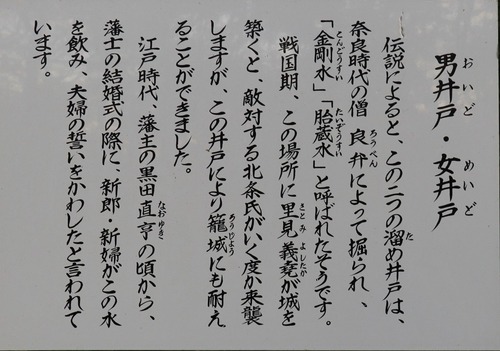 男井戸・女井戸
おいど めいど
伝説によると、この二つの溜め井戸は、
た
奈良時代の僧 良弁によって掘られ、
ろうべん
「金剛水」「胎蔵水」と呼ばれたそうです。
こんごうすい たいぞうすい
戦国期、この場所に里見義堯が城を
さとみよしたか
築くと、敵対する北条氏がいく度か来襲
しますが、この井戸により籠城にも耐え
ろうじよう
ることができました。
江戸時代、藩主の黒田直亨の頃から、
なおゆき
藩士の結婚式の際に、新郎・新婦がこの水
を飲み、夫婦の誓いをかわしたと言われて
います。